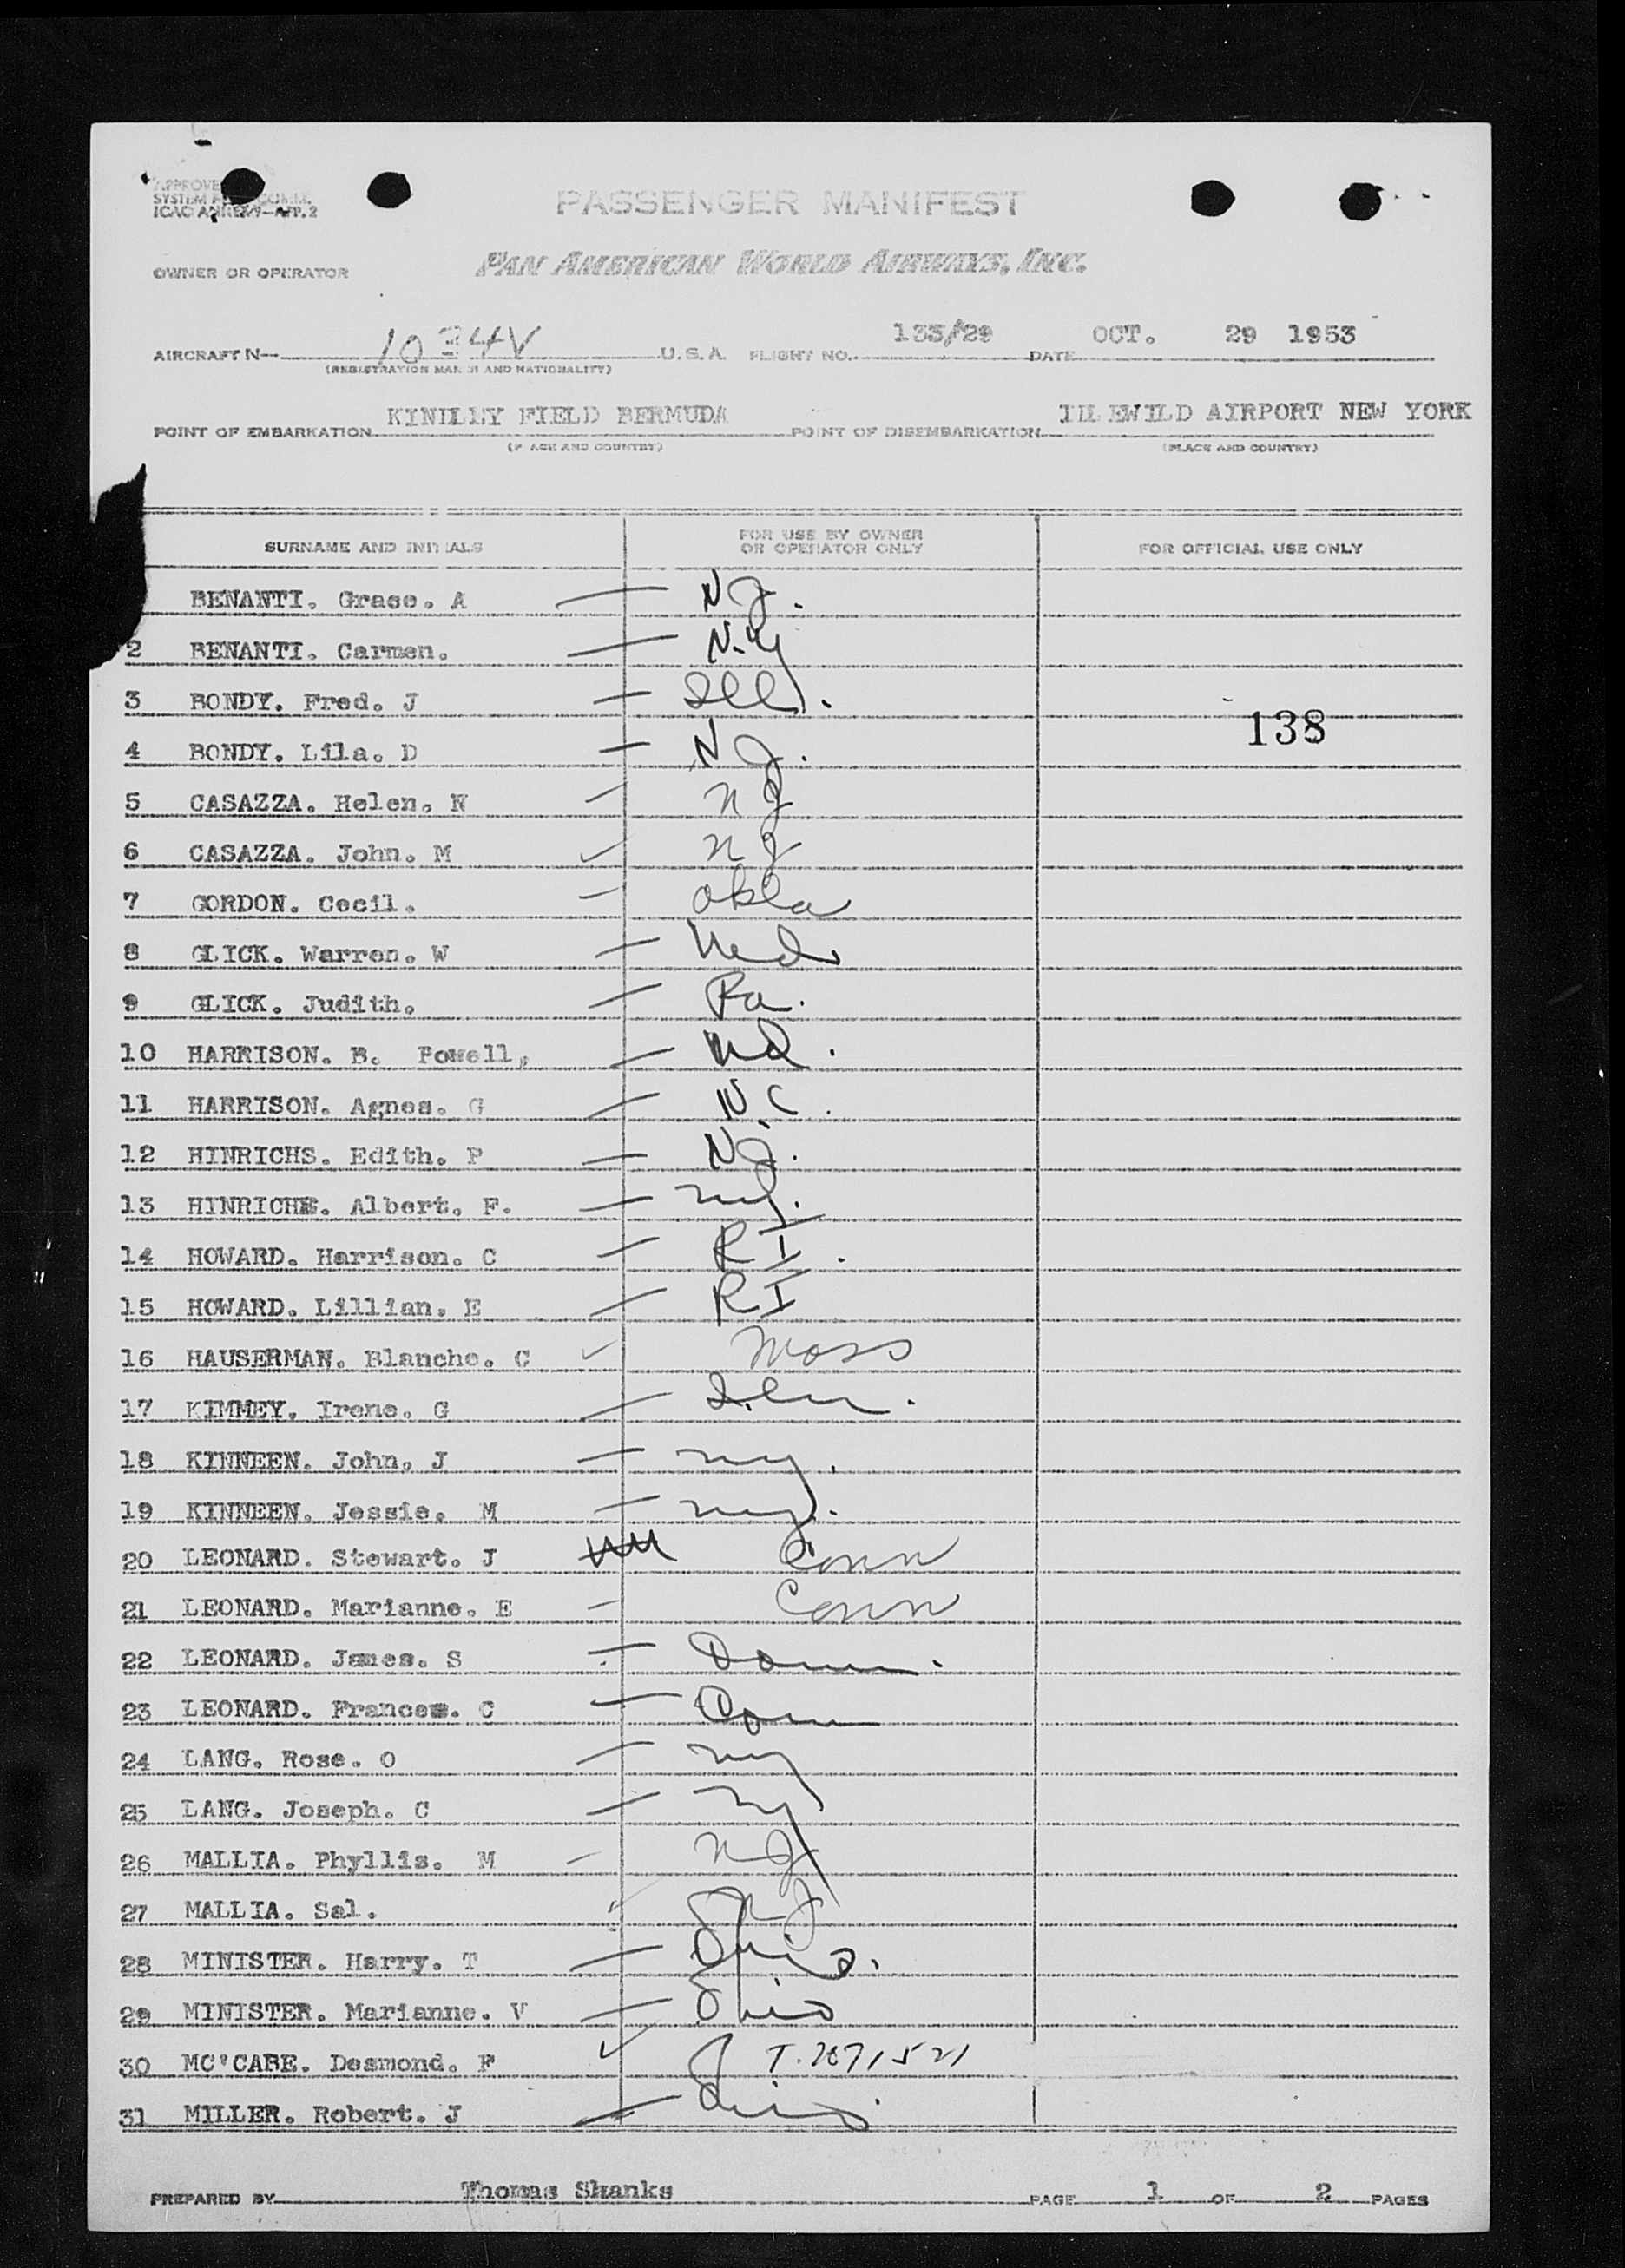 PASSENGER MANIFEST
ICAO ANNEX 9-APP. 2
OWNER OR OPERATOR PAN AMERICAN WORLD AIRWAYS, INC.
AIRCRAFT N- 1034V U.S.A. FLIGHT NO. 133/29 DATE OCT. 29 1953
(REGISTRATION MARK AND NATIONALITY)
POINT OF EMBARKATION KINDLEY FIELD BERMUDA POINT OF DISEMBARKATION IDLEWILD AIRPORT NEW YORK
(PLACE AND COUNTRY) (PLACE AND COUNTRY)
SURNAME AND INITIALS FOR USE BY OWNER OR OPERATOR ONLY FOR OFFICIAL USE ONLY
BENANTI. Grace. A N J.
2 BENANTI. Carmen. N.Y
3 BONDY. Fred. J Ill.
138
4 BONDY. Lila. D N J.
5 CASAZZA. Helen. N N J
6 CASAZZA. John. M N J
7 GORDON. Cecil. Okla
8 GLICK. Warren. W
9 GLICK. Judith. Pa.
10 HARRISON. B. Powell, Md.
11 HARRISON. Agnes. G N.C.
12 HINRICHS. Edith. P N J.
13 HINRICHS. Albert. F. NY.
14 HOWARD. Harrison. C R I.
15 HOWARD. Lillian. E R I
16 HAUSERMAN. Blanche. C Mass
17 KIMMEY. Irene. G
18 KINNEEN. John. J NY.
19 KINNEEN. Jessie. M NY.
20 LEONARD. Stewart. J Conn
21 LEONARD. Marianne. E Conn
22 LEONARD. James. S Conn.
23 LEONARD. Frances. C Conn
24 LANG. Rose. O NY
25 LANG. Joseph. C NY
26 MALLIA. Phyllis. M N J
27 MALLIA. Sal. N J
28 MINISTER. Harry. T Ohio.
29 MINISTER. Marianne. V Ohio
30 MC'CABE. Desmond. F
31 MILLER. Robert. J Ohio
PREPARED BY Thomas Shanks PAGE 1 OF 2 PAGES